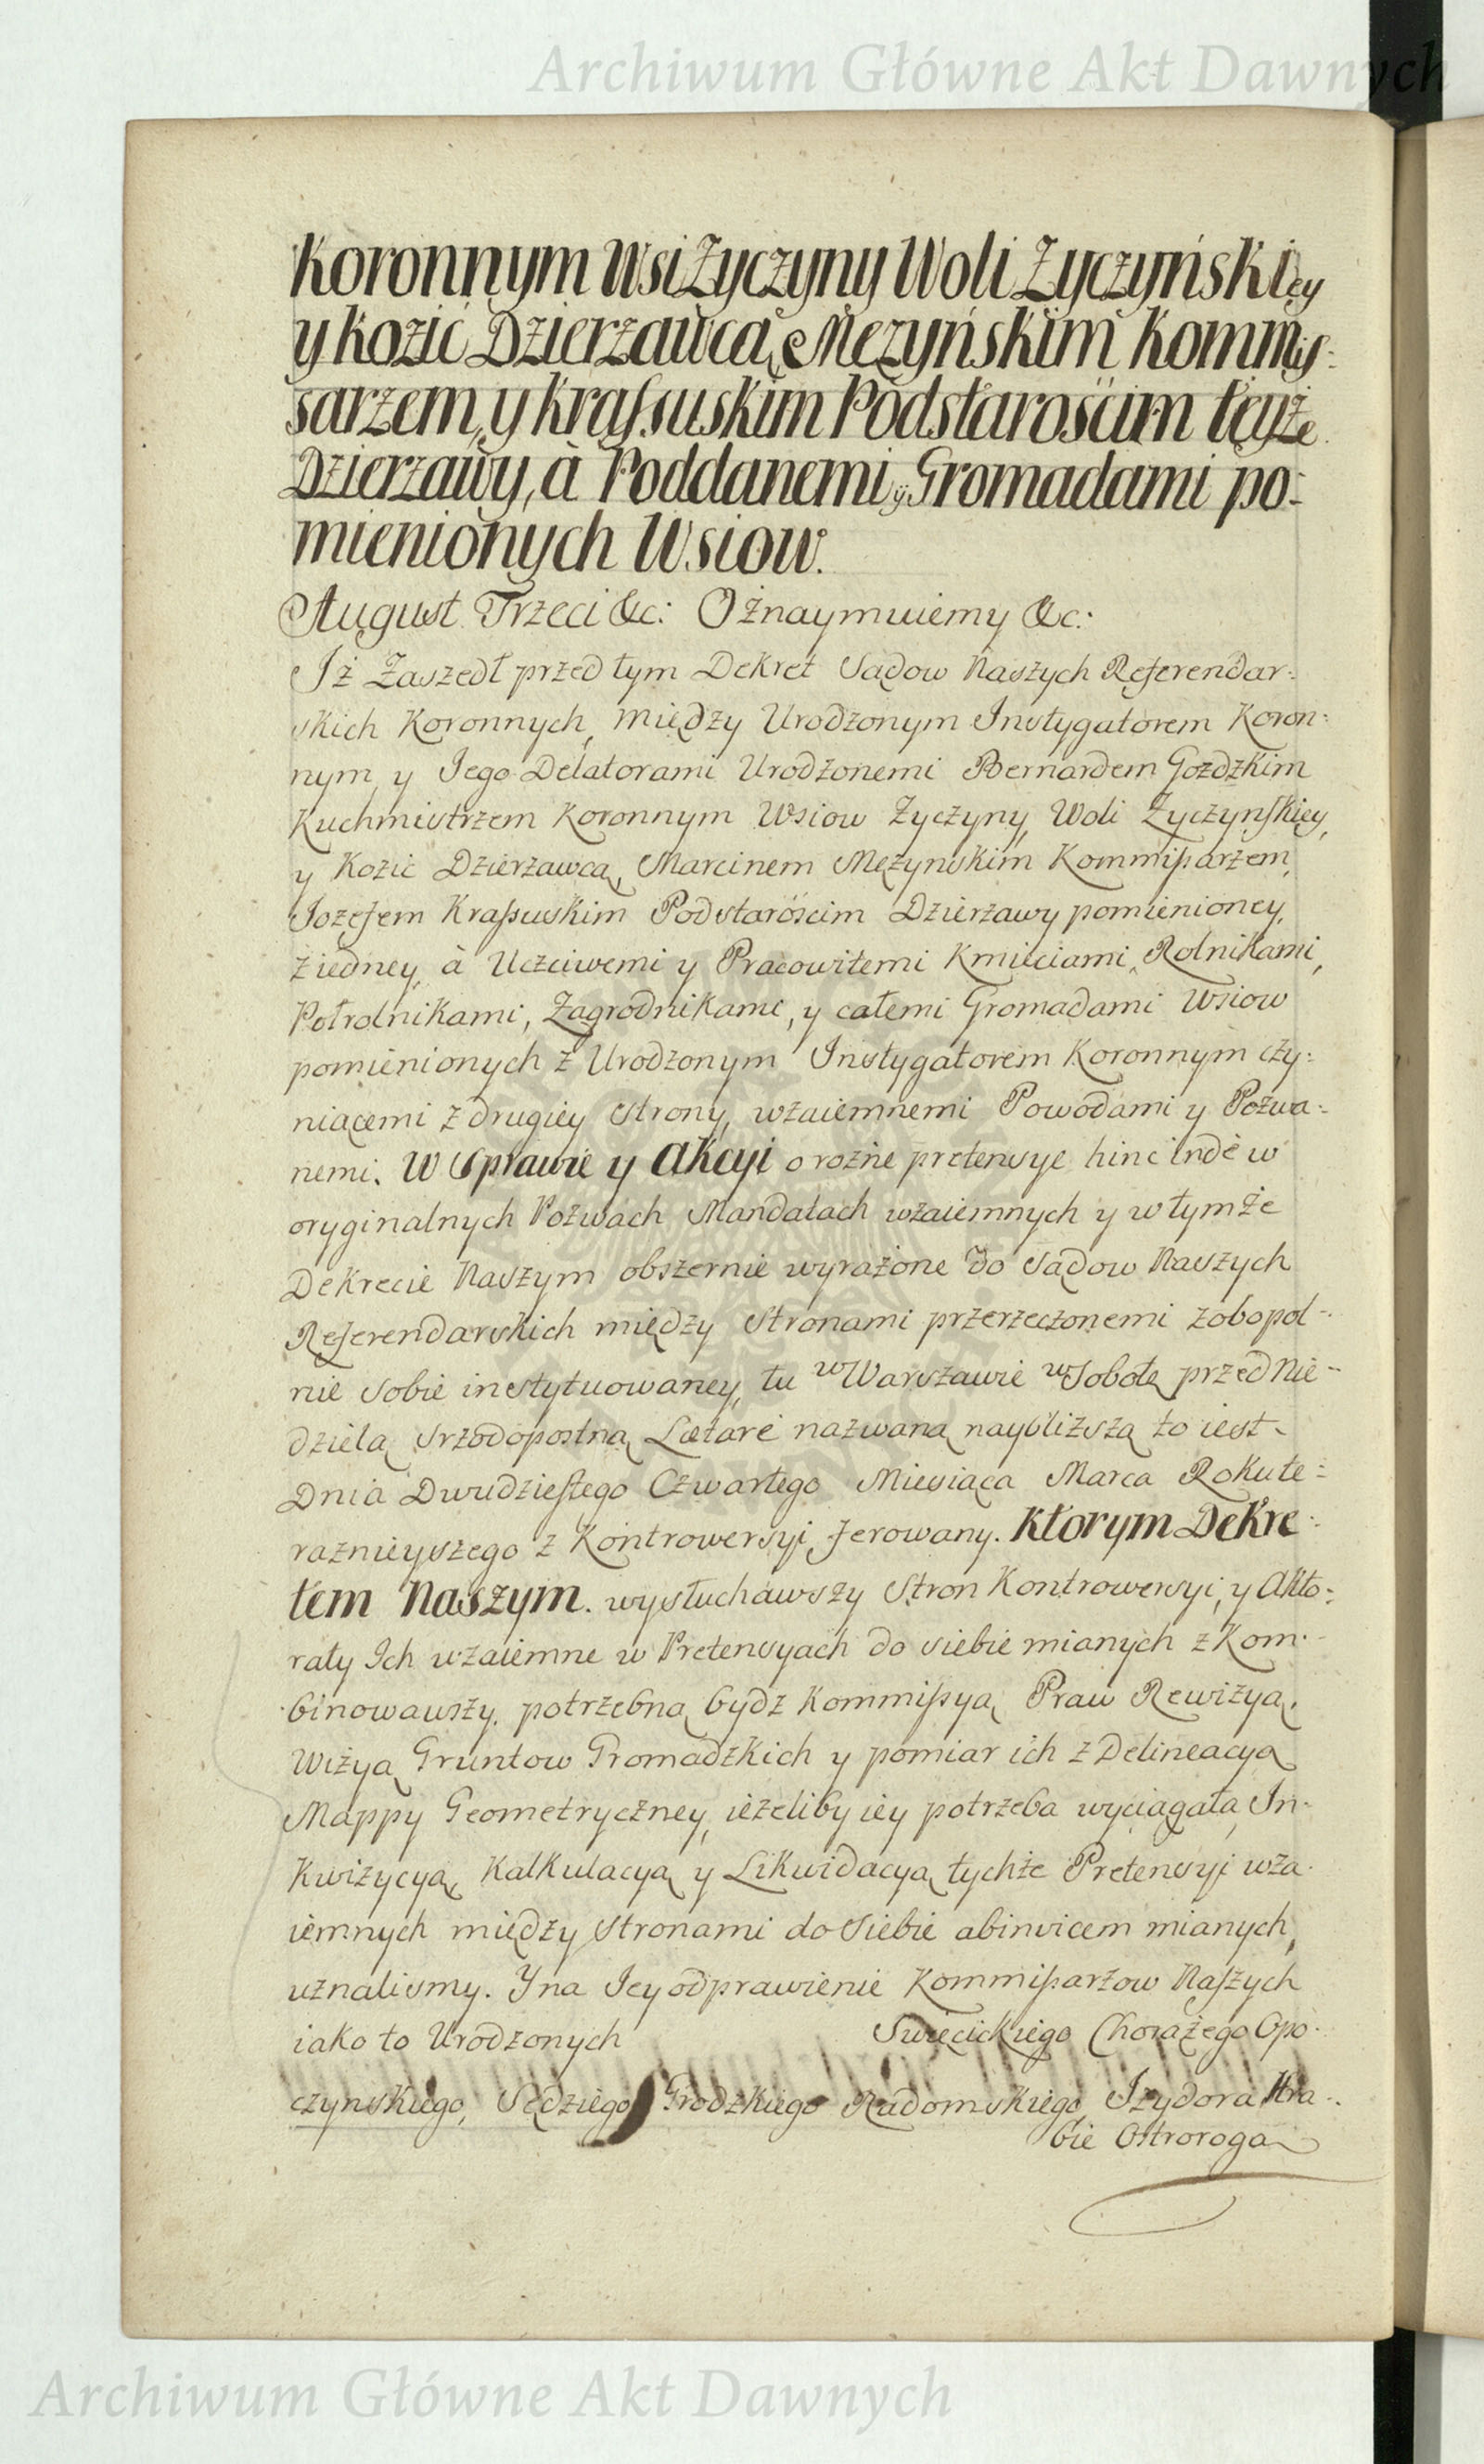 Archiwum Główne Akt Dawnych
Koronnym Wsi Życzyny Woli Życzyńskiey
y Kozic Dzierzawcą, Męzyńskim Kommis-
sarzem, y Krassuskim Podstarościm teyże
Dzierzawy, à Poddanemi y Gromadami po-
mienionych Wsiow.
August Trzeci &c: Oznaymuiemy &c:
Iż Zaszedł przed tym Dekret Sądow Naszych Referendar-
skich Koronnych, między Urodzonym Instygatorem Koron-
nym, y Jego Delatorami Urodzonemi Bernardem Gozdzkim
Kuchmistrzem Koronnym Wsiow Życzyny, Woli Życzynskiey,
y Kozic Dzierzawcą, Marcinem Męzynskim Kommissarzem,
Jozefem Krassuskim Podstarościm Dzierzawy pomienioney,
z iedney, à Uczciwemi y Pracowitemi Kmieciami, Rolnikami,
Połrolnikami, Zagrodnikami, y całemi Gromadami Wsiow
pomienionych z Urodzonym Instygatorem Koronnym czy-
niącemi z drugiey Strony, wzaiemnemi Powodami y Pozwa-
nemi. W Sprawie y Akcyi o rożne pretensye hinc inde w
oryginalnych Pozwach Mandatach wzaiemnych y w tymże
Dekrecie Naszym obszernie wyrażone do Sądow Naszych
Referendarskich między Stronami przerzeczonemi zobopol-
nie sobie instytuowaney, tu w Warszawie w Sobotę przed Nie-
dzielą Srzodopostną Lætare nazwaną naybliższą to iest
Dnia Dwudziestego Czwartego Miesiąca Marca Roku te-
raznieyszego z Kontrowersyi ferowany. Ktorym Dekre-
tem Naszym. wysłuchawszy Stron Kontrowersyi, y Akto-
raty Ich wzaiemne w Pretensyach do siebie mianych z Kom-
binowawszy, potrzebną bydz Kommissyą, Praw Rewizyą,
Wizyą Gruntow Gromadzkich y pomiar ich z Delineacyą
Mappy Geometryczney, ieżeliby iey potrzeba wyciągała, In-
kwizycyą, Kalkulacyą y Likwidacyą tychże Pretensyi wza-
iemnych między Stronami do Siebie abinvicem mianych,
uznalismy. Y na Jey odprawienie Kommissarzow Naszych
iako to Urodzonych Swięcickiego Chorążego Opo-
czynskiego, Sędziego Grodzkiego Radomskiego, Izydora Hra-
bie Ostroroga
Archiwum Główne Akt Dawnych